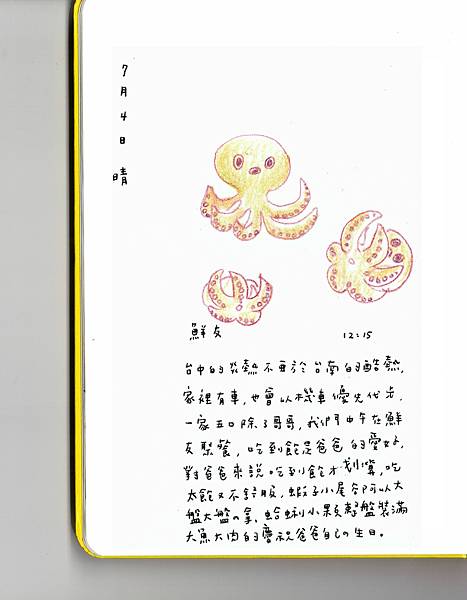 7月4日 晴
鮮友 12:15
台中的炎熱不亞於台南的酷熱,
家裡有車,也會以機車優先代步,
一家五口除了哥哥,我們中午在鮮
友聚餐,吃到飽是爸爸的愛好,
對爸爸來說吃到飽才划算,吃
太飽又不舒服,蝦子小尾卻可以大
盤大盤的拿,蛤蜊小顆整盤裝滿
大魚大肉的慶祝爸爸自己的生日。